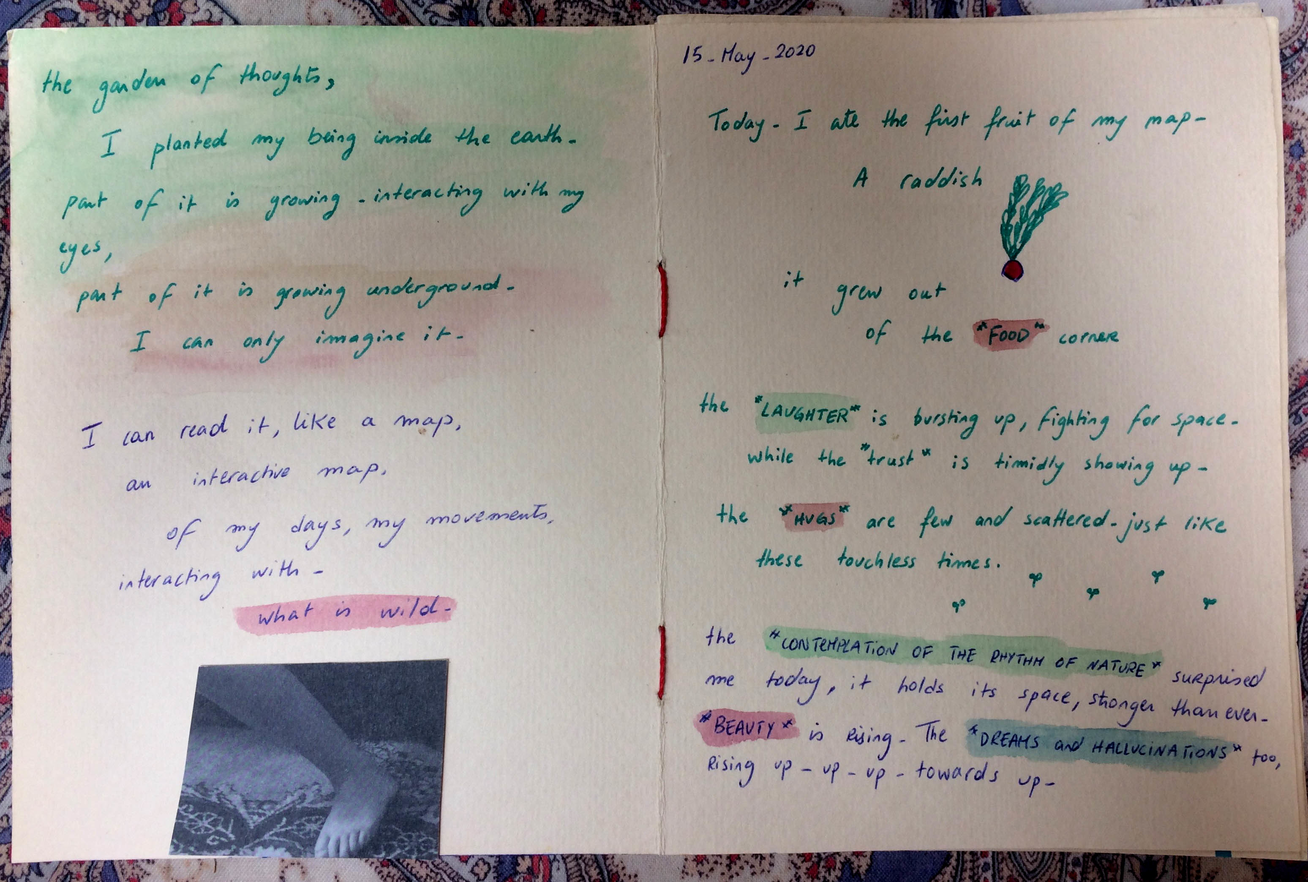 the garden of thoughts,
I planted my being inside the earth-
part of it is growing - interacting with my
eyes,
part of it is growing underground-
I can only imagine it-
I can read it, like a map,
an interactive map,
of my days, my movements,
interacting with -
what is wild-
15-May-2020
Today- I ate the first fruit of my map-
A raddish
it grew out
of the *FOOD* corner
the *LAUGHTER* is bursting up, fighting for space-
while the *trust* is timidly showing up-
the *HUGS* are few and scattered-just like
these touchless times.
the *CONTEMPLATION OF THE RHYTHM OF NATURE* surprised
me today, it holds its space, stronger than ever-
*BEAUTY* is Rising- The *DREAMS and HALLUCINATIONS* too,
Rising up - up - up - towards up-